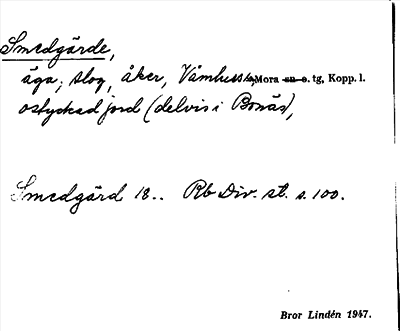 Smedgärde,
äga, slog, åker, Våmhus s, Mora sn o. tg, Kopp. l.
ostyckad jord (delvis i Bonäs),
Smedgärd 18.. Rb Div. st. s. 100.
Bror Lindén 1947.